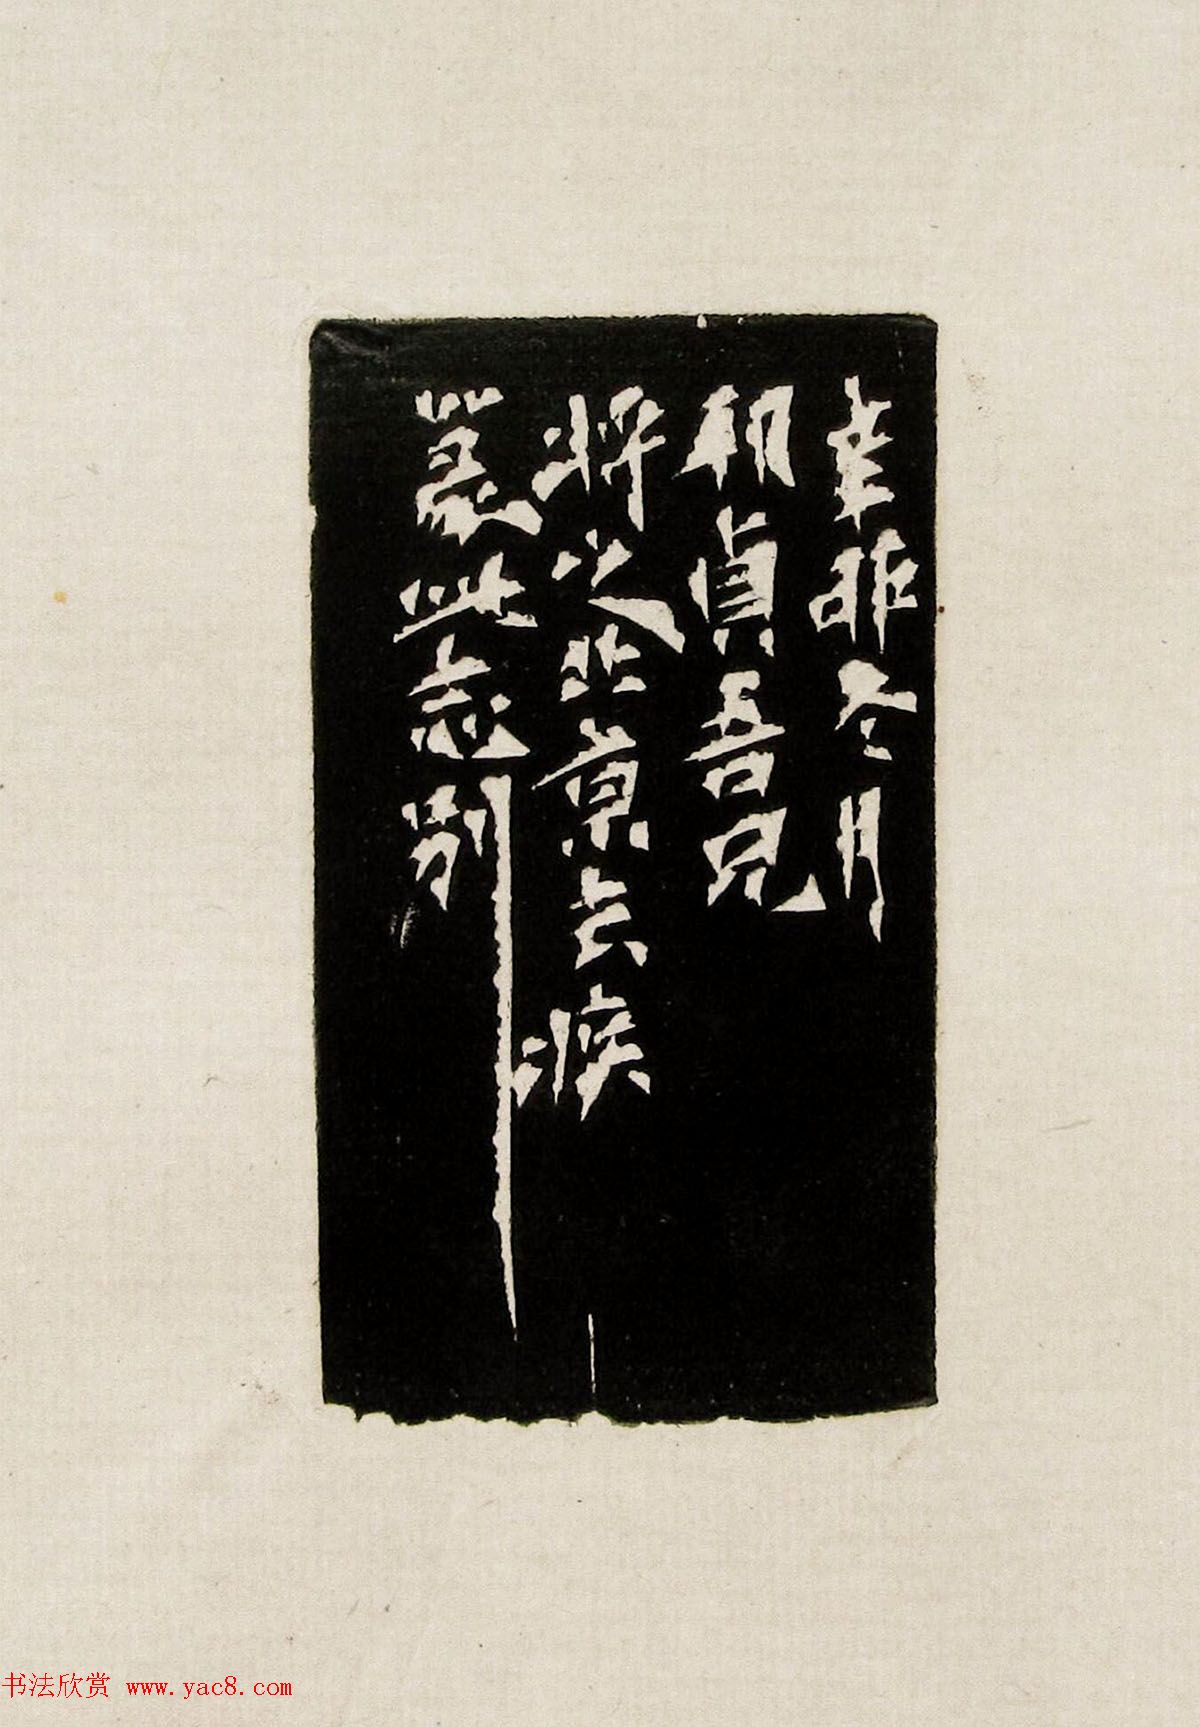 辛卯冬月
貞吾兄
將之北京去疾
篆此志別
书法欣赏 www.yac8.com